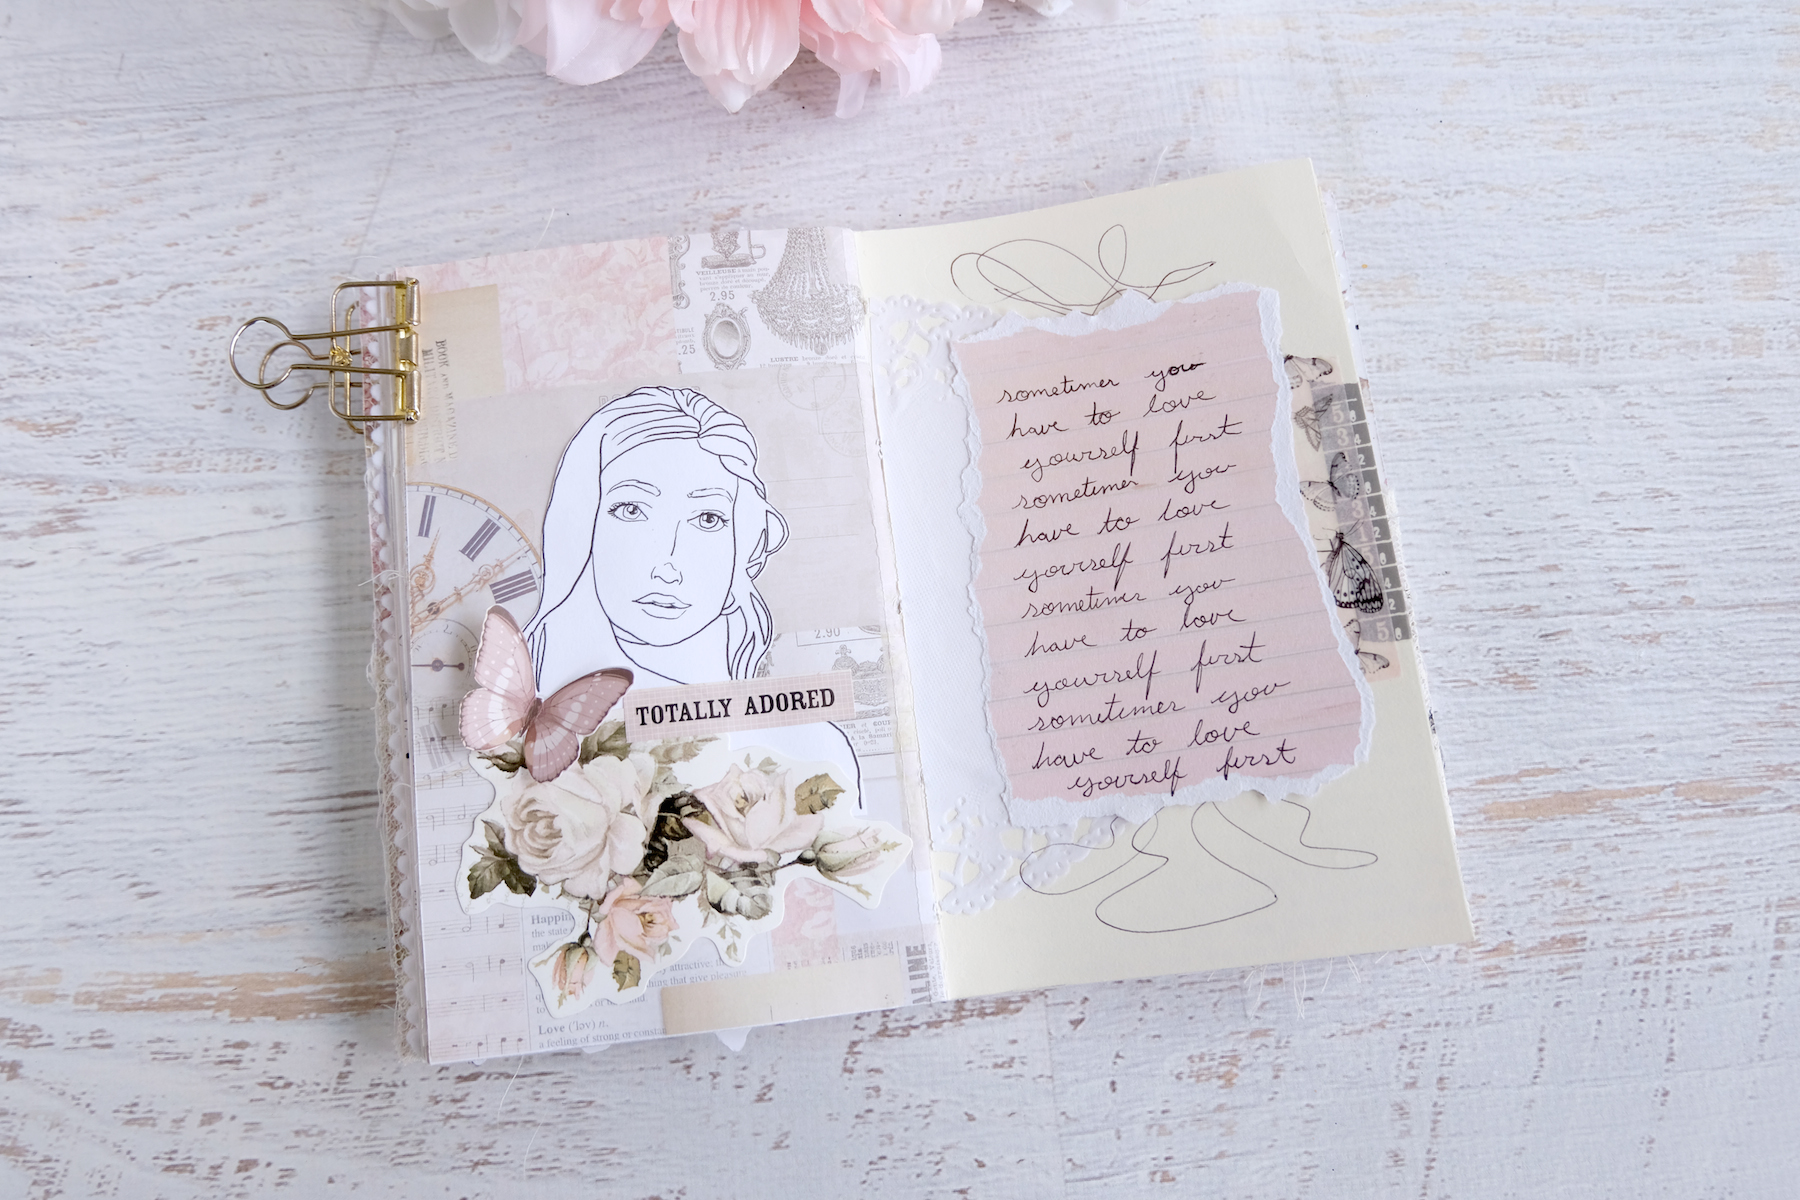 VEILLEUSE
2.95
.25
LUSTRE
BOOK
2.90
9-72.
TOTALLY ADORED
Happin
the state
attractive, th
thing that give pleasure
Love ('ləv) n.
a feeling of strong or consta
ALINE
sometimes you
have to love
yourself first
sometimes you
have to love
yourself first
sometimes you
have to love
yourself first
sometimes you
have to love
yourself first